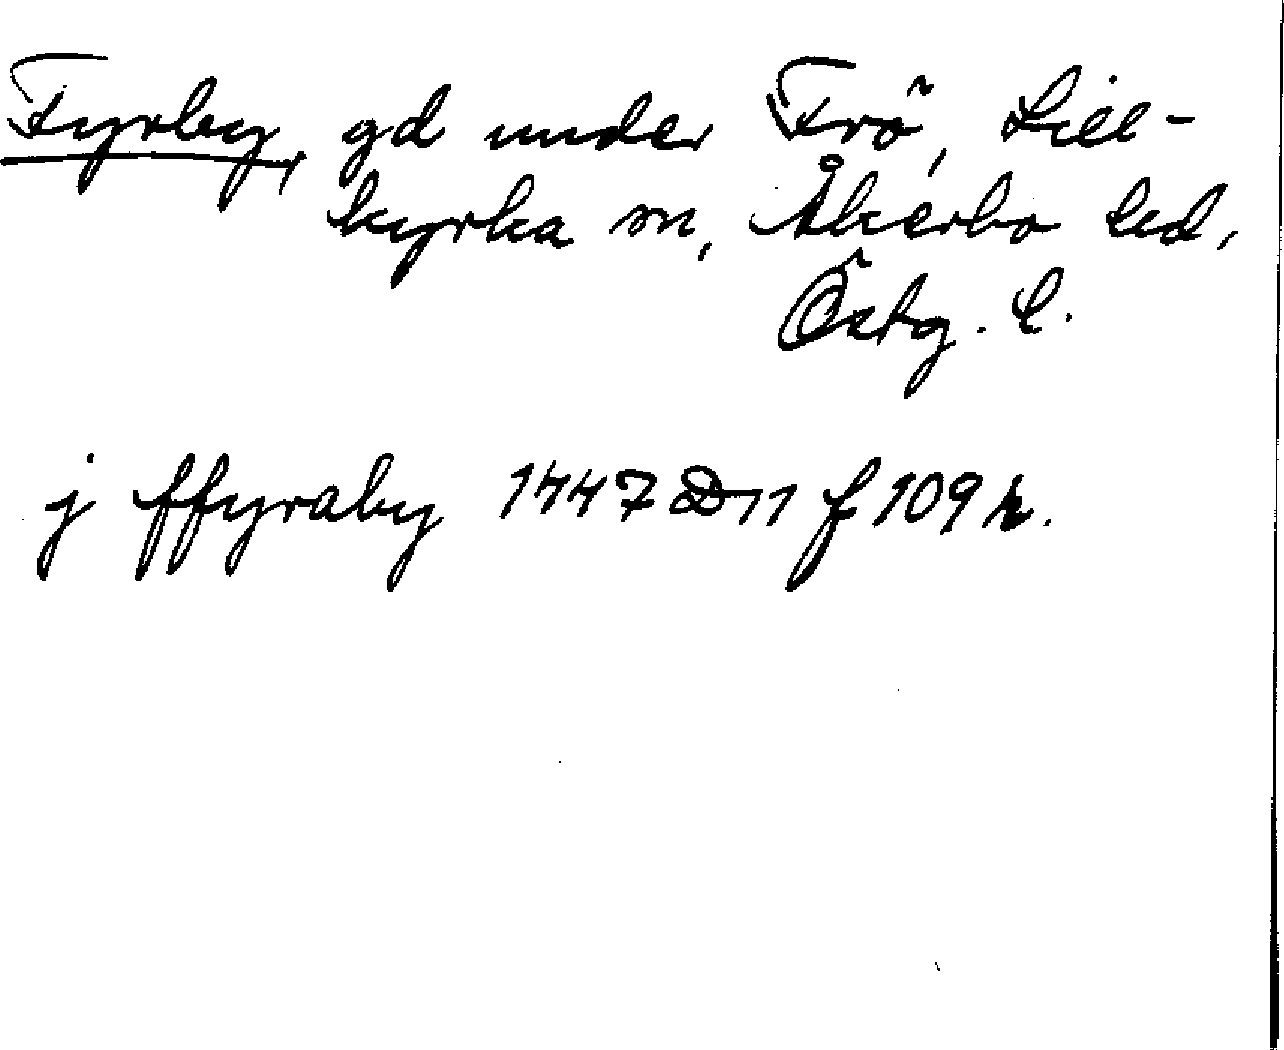 Fyrby, gd under Frö, Lill-
kyrka sn, Åkerbo hd,
Östg. l.
j ffyraby 1447 D 11 f 109 r.